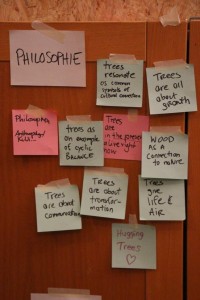 PHILOSOPHIE
trees
resonate
as common
symbols of
cultural connection
Trees
are all
about
growth
Philosophie
trees as
an example
of cyclic
BALANCE
Trees
are
in the present
right
now
WOOD AS
a
connection
to nature
Trees
are about
communication
Trees
are about
transfor-
mation
Trees
give
life &
Air
Hugging
Trees